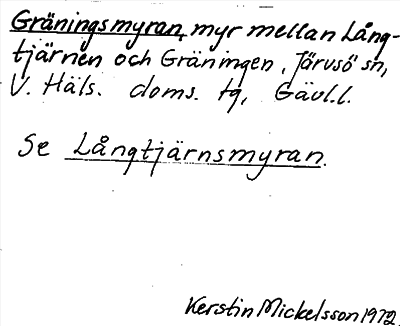 Gräningsmyran, myr mellan Lång-
tjärnen och Gräningen, Järvsö sn,
V. Häls. doms. tg, Gävl.l.
Se Långtjärnsmyran.
Kerstin Mickelsson 1972.